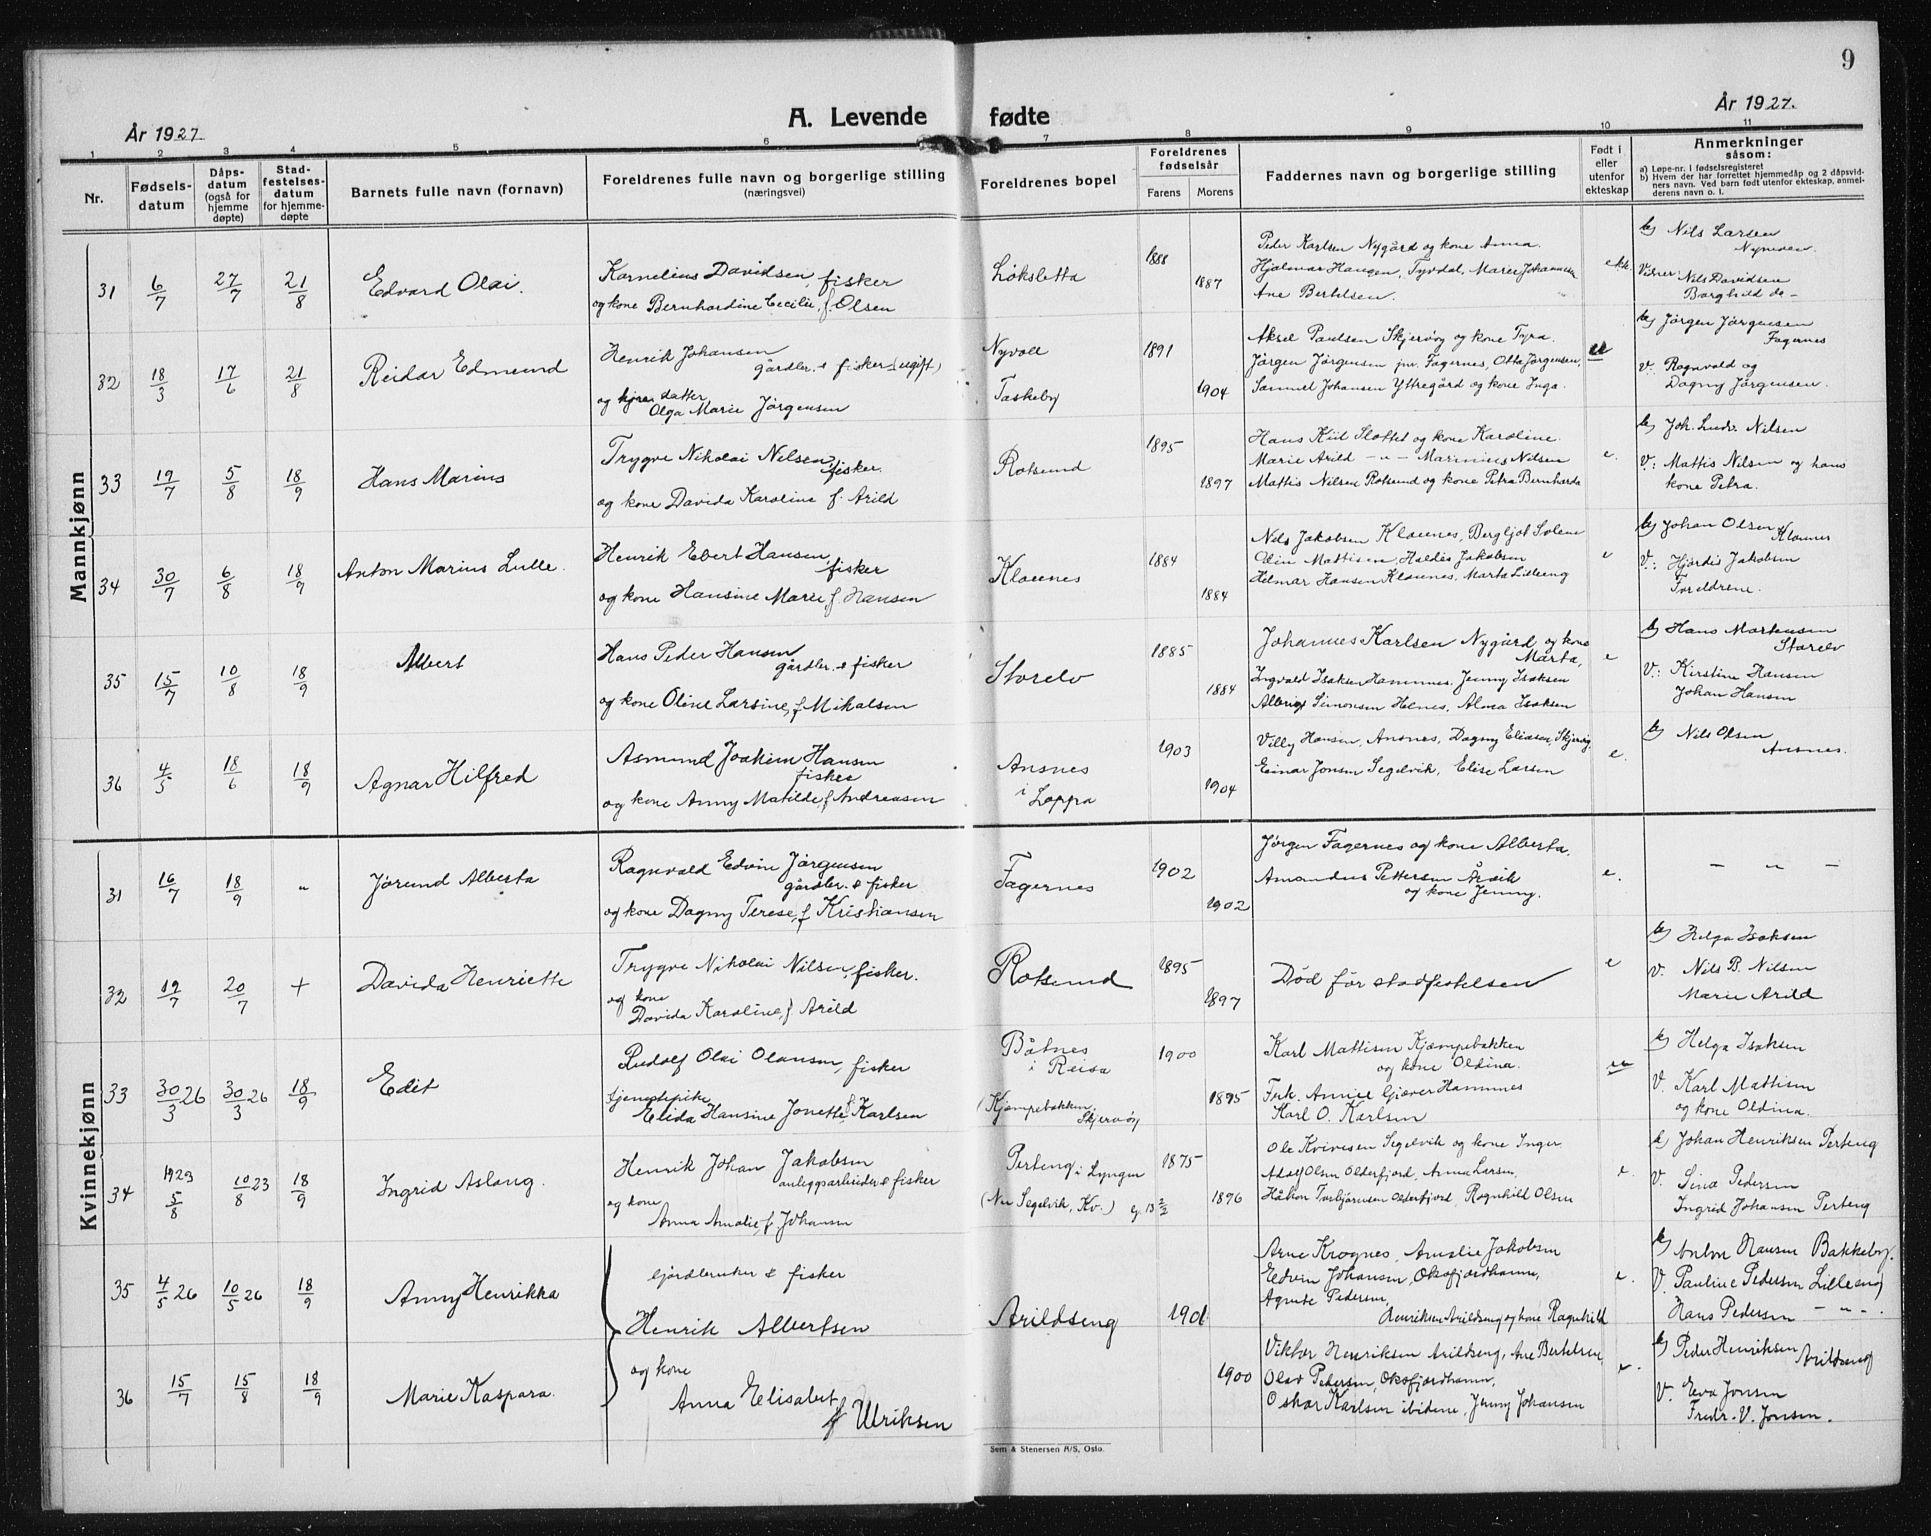 9
År 1927.
A. Levende fødte
År 1927.
1 2 3 4 5 6 7 8 9 10 11
Nr.
Fødsels-
datum
Dåps-
datum
(også for
hjemme
døpte)
Stad-
festelses-
datum
for hjemme-
døpte
Barnets fulle navn (fornavn)
Foreldrenes fulle navn og borgerlige stilling
(næringsvei)
Foreldrenes bopel
Foreldrenes
fødselsår
Farens Morens
Faddernes navn og borgerlige stilling
Født i
eller
utenfor
ekteskap
Anmerkninger
såsom:
a) Løpe-nr. i fødselsregisteret
b) Hvem der har forrettet hjemmedåp og 2 dåpsvid-
ners navn. Ved barn født utenfor ekteskap, anmel-
derens navn o. l.
Mannkjønn
31 6/7 27/7 21/8 Edvard Olai.
Kornelius Davidsen, fisker
og kone Bernhardine Cecilie, f. Olsen
Løksletta
1888
1887
Peder Karlsen Nygård og kone Anna.
Hjalmar Hansen, Tyvdal, Marie Johannesen
Ane Bertelsen.
ekte.
b) Nils Larsen
Vidner: Nils Davidsen
Borghild do -
32 18/3 17/6 21/8 Reidar Edmund
Henrik Johansen
gårdbr. & fisker (ugift)
og datter
Olga Marie Jørgensen
Nyvoll
Taskeby
1891
1904
Aksel Paulsen Skjervøy og kone Tyra.
Jørgen Jørgensen jnr Fagernes, Otto Jørgensen,
Samuel Johansen Yttregård og kone Inga.
u
b) Jørgen Jørgensen
Fagernes
V: Ragnvald og
Dagny Jørgensen.
33 19/7 5/8 18/9 Hans Marius
Trygve Nikolai Nilsen,
fisker.
og kone Davida Karoline f. Arild
Rotsund
1895
1897
Hans Kiil Slottet og kone Karoline.
Marie Arild - " - Marinius Nilsen
Mattis Nilsen Rotsund og kone Petra Bernharda
e.
b) Joh. Ludv. Nilsen
V: Mattis Nilsen og hans
kone Petra.
34 30/7 6/8 18/9 Anton Marius Lulle.
Henrik Ebert Hansen,
fisker
og kone Hansine Marie, f. Hansen
Klauenes
1884
1884
Nils Jakobsen Klauenes, Bergljot Solene
Odin Mattisen, Haldis Jakobsen
Helmar Hansen Klauenes, Marta Lilleeng
e
b) Johan Olsen
V: Hjørdis Jakobsen
Foreldrene.
35 15/7 10/8 18/9 Albert
Hans Peder Hansen
gårdbr. & fisker
og kone Oline Larsine, f Mikalsen
Storelv
1885
1884
Johannes Karlsen Nygård og kone
Marta,
Ingvald Isaksen Hamnnes, Jenny Isaksen
Albrigt Simonsen Helnes, Alma Isaksen
e
b) Hans Mortensen
Storelv
V: Kirstine Hansen
Johan Hansen
36 4/5 18/6 18/9 Agnar Hilfred
Asmund Joakim Hansen
fisker
og kone Anny Matilde f Andreasen
Ansnes
i Loppa
1903
1904
Villy Hansen, Ansnes, Dagny Eliasen, Skjervøy,
Einar Jonsen Segelvik, Elise Larsen
e.
b) Nils Olsen
Ansnes.
Kvinnekjønn
31 16/7 18/9 " Jørund Alberta
Ragnvald Edvin Jørgensen
gårdbr. & fisker
og kone Dagny Terese, f Kristiansen
Fagernes
1902
1902
Jørgen Fagernes og kone Alberta.
Amandus Pettersen Årvik
og kone Jenny.
e.
- " -
32 19/7 20/7 + Davida Henriette
Trygve Nikolai Nilsen, fisker.
og kone
Davida Karoline, f Arild
Rotsund
1895
1897
Død før stadfestelsen
e
b) Helga Isaksen
V. Nils B. Nilsen
Marie Arild
33 30/3 26 30/3 26 18/9 Edit
Rudolf Olai Olausen, fisker
tjenestepike
Elida Hansine Jonette f Karlsen
Båtnes
i Reisa
(Kjæmpebakken,
Skjervøy
1900
1895
Karl Mattisen Kjæmpebakken
og kone Oldina.
Frk. Annie Gjæver Hamnnes
Karl O. Karlsen
u
b) Helga Isaksen
V. Karl Mattisen
og kone Oldina.
34 1923 5/8 10/8 23 18/9 Ingrid Aslaug.
Henrik Johan Jakobsen
anleggsarbeider & fisker
og kone
Anna Amalie, f Johansen
Perteng i Lyngen
(Nu Segelvik, Kv.)
1875
1896
Ole Kvivesen Segelvik og kone Inger
Adolf Olsen Olderfjord, Anna Larsen,
Håkon Torbjørnsen Olderfjord, Ragnhild Olsen
e.
b) Johan Henriksen Perteng
V. Lina Pedersen
Ingrid Johansen Perteng
35 4/5 26 10/5 26 18/9 Anny Henrikka
Gårdbruker & fisker
Henrik Albertsen
Arildseng
1901
Arne Krognes, Amalie Jakobsen
Edvin Johansen, Oksfjordhamn,
Agnete Pedersen,
Henriksen Arildseng og kone Ragnhild
e.
b) Anton Hansen Bakkeby.
V. Pauline Pedersen Lilleeng
Hans Pedersen - " - .
36 15/7 15/8 18/9 Marie Kaspara.
og kone
Anna Elisabet,
f Ulriksen
1900
Viktor Henriksen Arildseng, Ane Bertelsen,
Olav Pedersen, Oksfjordhamn,
Oskar Karlsen ibidene, Jenny Johansen
e.
b) Peder Henriksen Arildseng
V. Eva Jonsen
Fredr. V. Jonsen.
Sem & Stenersen A/S, Oslo.